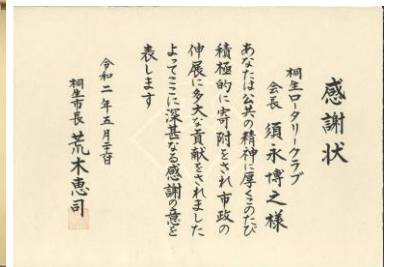 感謝状
桐生ロータリークラブ
会長 須永博之様
あなたは公共の精神に厚くこのたび
積極的に寄附をされ市政の
伸展に多大な貢献をされました
よってここに深甚なる感謝の意を
表します
令和二年五月
桐生市長 荒木恵司